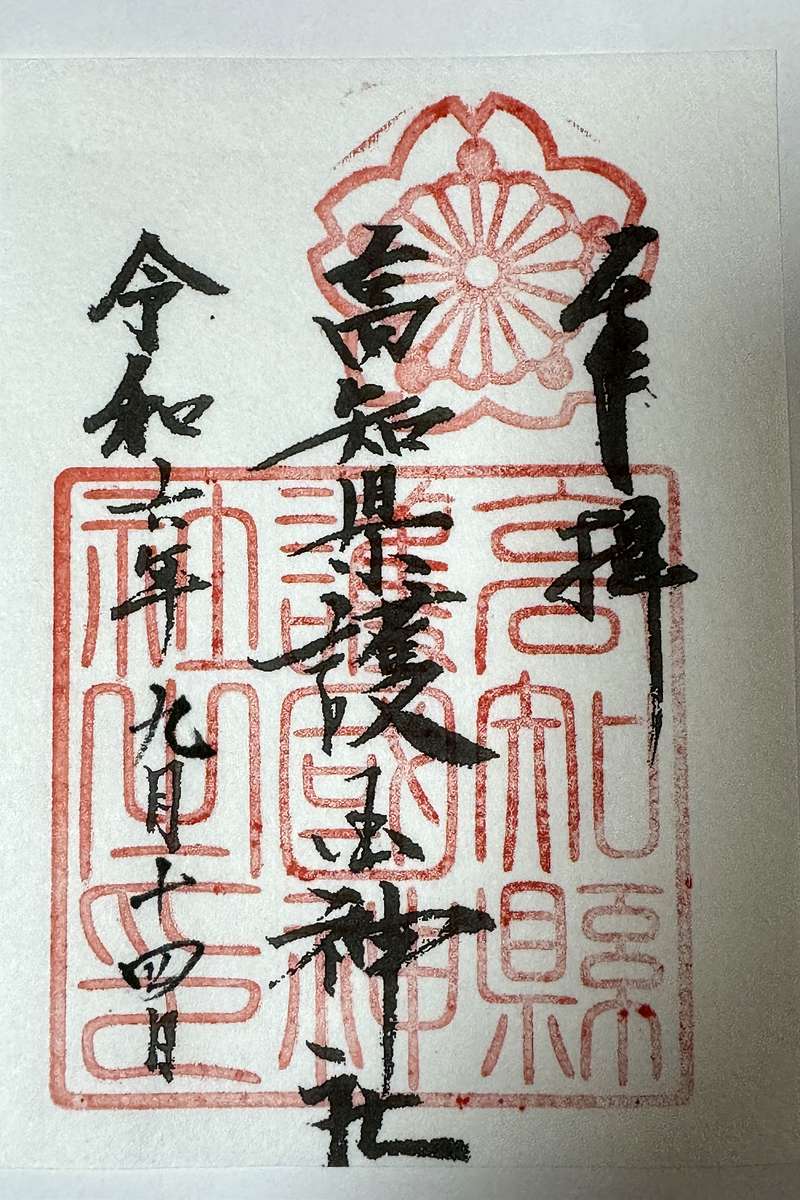 奉拝
高知県護国神社
令和六年九月十四日
高知縣
護國神
社之印